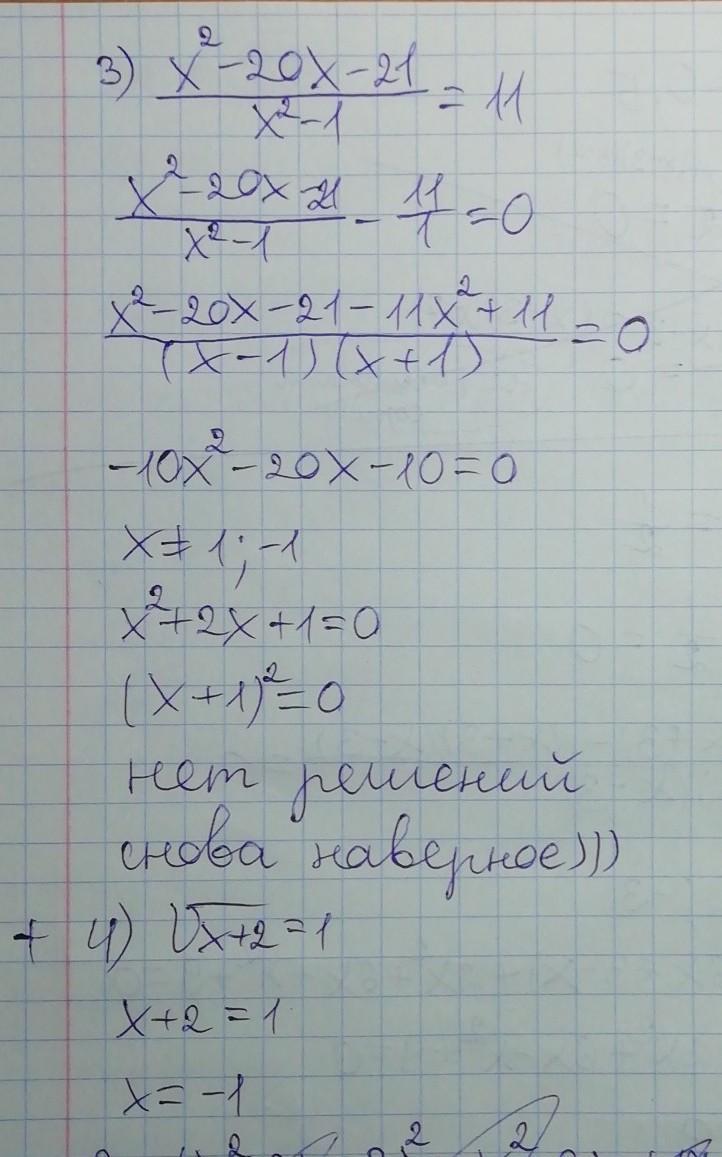 3) (x² - 20x - 21)/(x² - 1) = 11
(x² - 20x - 21)/(x² - 1) - 11/1 = 0
(x² - 20x - 21 - 11x² + 11)/((x - 1)(x + 1)) = 0
-10x² - 20x - 10 = 0
x ≠ 1; -1
x² + 2x + 1 = 0
(x + 1)² = 0
нет решений
снова наверное)))
+ 4) √(x+2) = 1
x + 2 = 1
x = -1